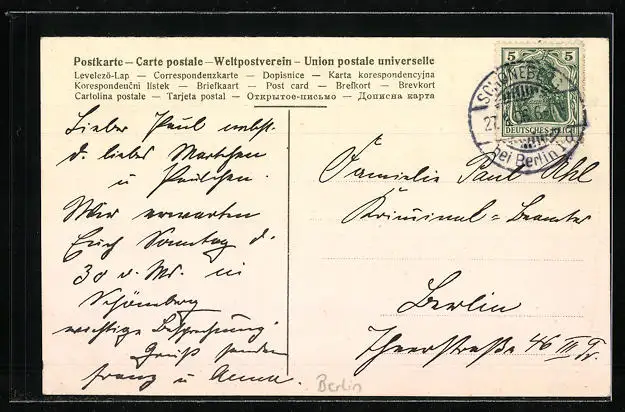 Postkarte – Carte postale – Weltpostverein – Union postale universelle
Levelező-Lap — Correspondenzkarte — Dopisnice — Karta korespondencyjna
Korespondenční lístek — Briefkaart — Post card — Brefkort — Brevkort
Cartolina postale — Tarjeta postal — Открытое письмо — Дописна карта
5 5
DEUTSCHES REICH
SCHÖNEBERG
27.
bei Berlin
Lieber Paul nebst
d. liebes
u Paulchen.
Wir erwarten
Euch Sonntag d.
30 d. Mt. in
Schöneberg
wichtige Besprechung
Gruß senden
Franz u Anna.
Familie Paul Uhl
Kriminal = Beamter
Berlin
46 III Tr.
Berlin